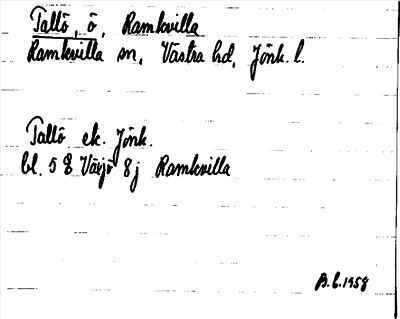 Tallö, ö, Ramkvilla
Ramkvilla sn, Västra hd, Jönk. l.
Tallö ek. Jönk.
bl. 5 8 Växjö 8j Ramkvilla
B.L. 1958